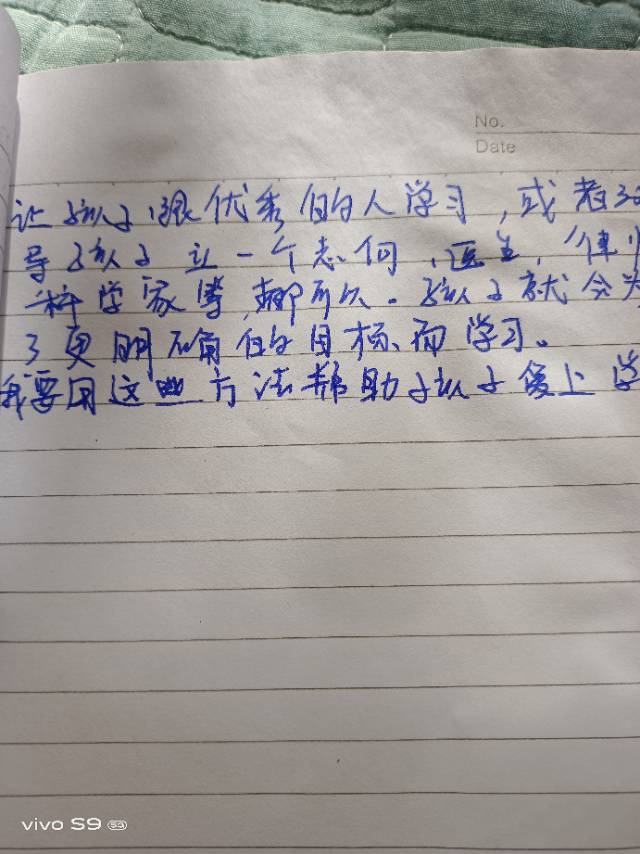 No.
Date
让孩子跟优秀的人学习,或者
导孩子立一个志向,医生,律
科学家等,都可以。孩子就会为
了更明确的目标而学习。
我要用这些方法帮助孩子爱上学
vivo S9 5G